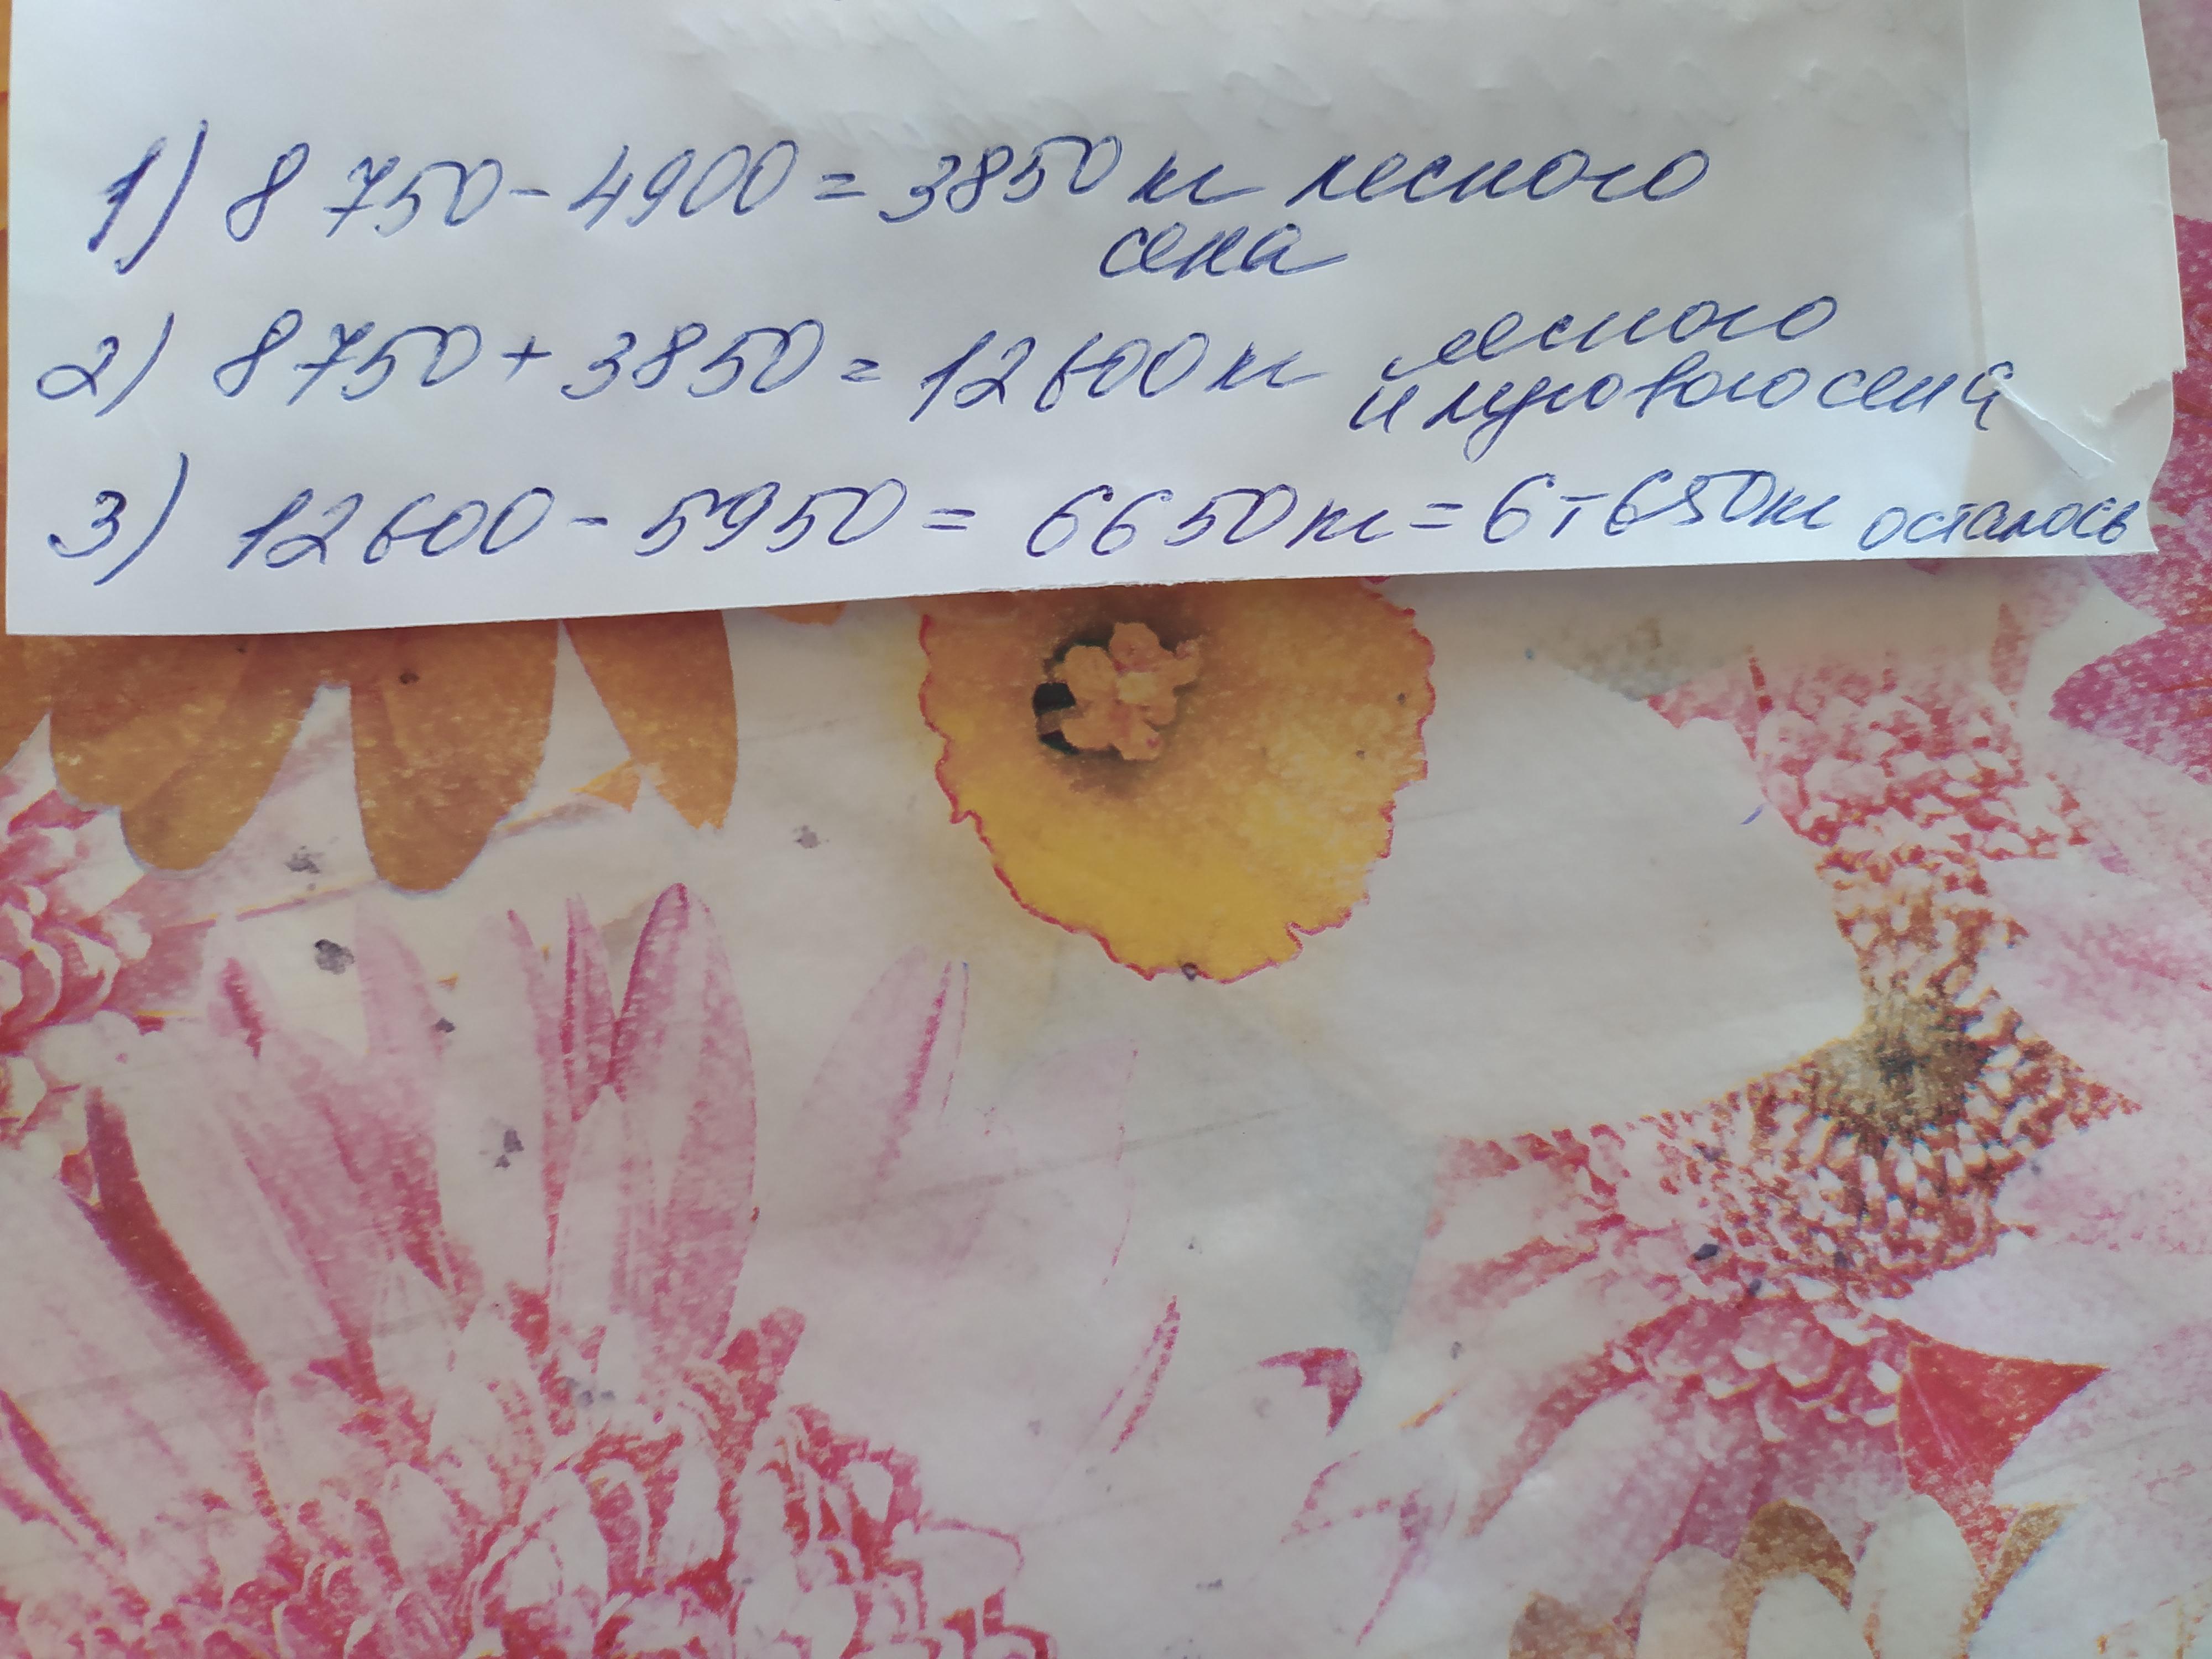 1) 8 750 - 4900 = 3850 кг лесного
сена
2) 8750 + 3850 = 12600 кг лесного
и лугового сена
3) 12600 - 5950 = 6650 кг = 6т 650 кг осталось